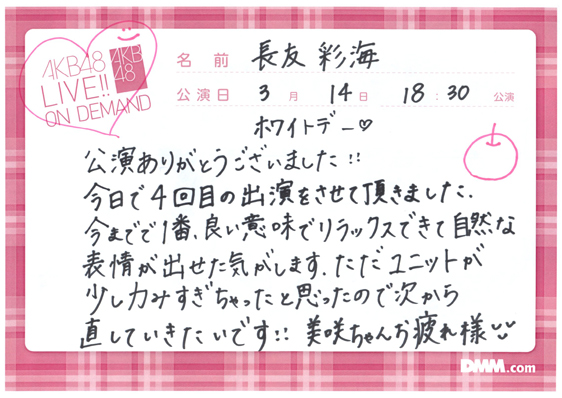 AKB48
LIVE!!
ON DEMAND
AKB
48
名前 長友 彩海
公演日 3月 14日 18:30 公演
ホワイトデー♡
公演ありがとうございました!!
今日で4回目の出演をさせて頂きました.
今までで1番、良い意味でリラックスできて自然な
表情が出せた気がします.ただユニットが
少し力みすぎちゃったと思ったので次から
直していきたいです!! 美咲ちゃんお疲れ様
DMM.com